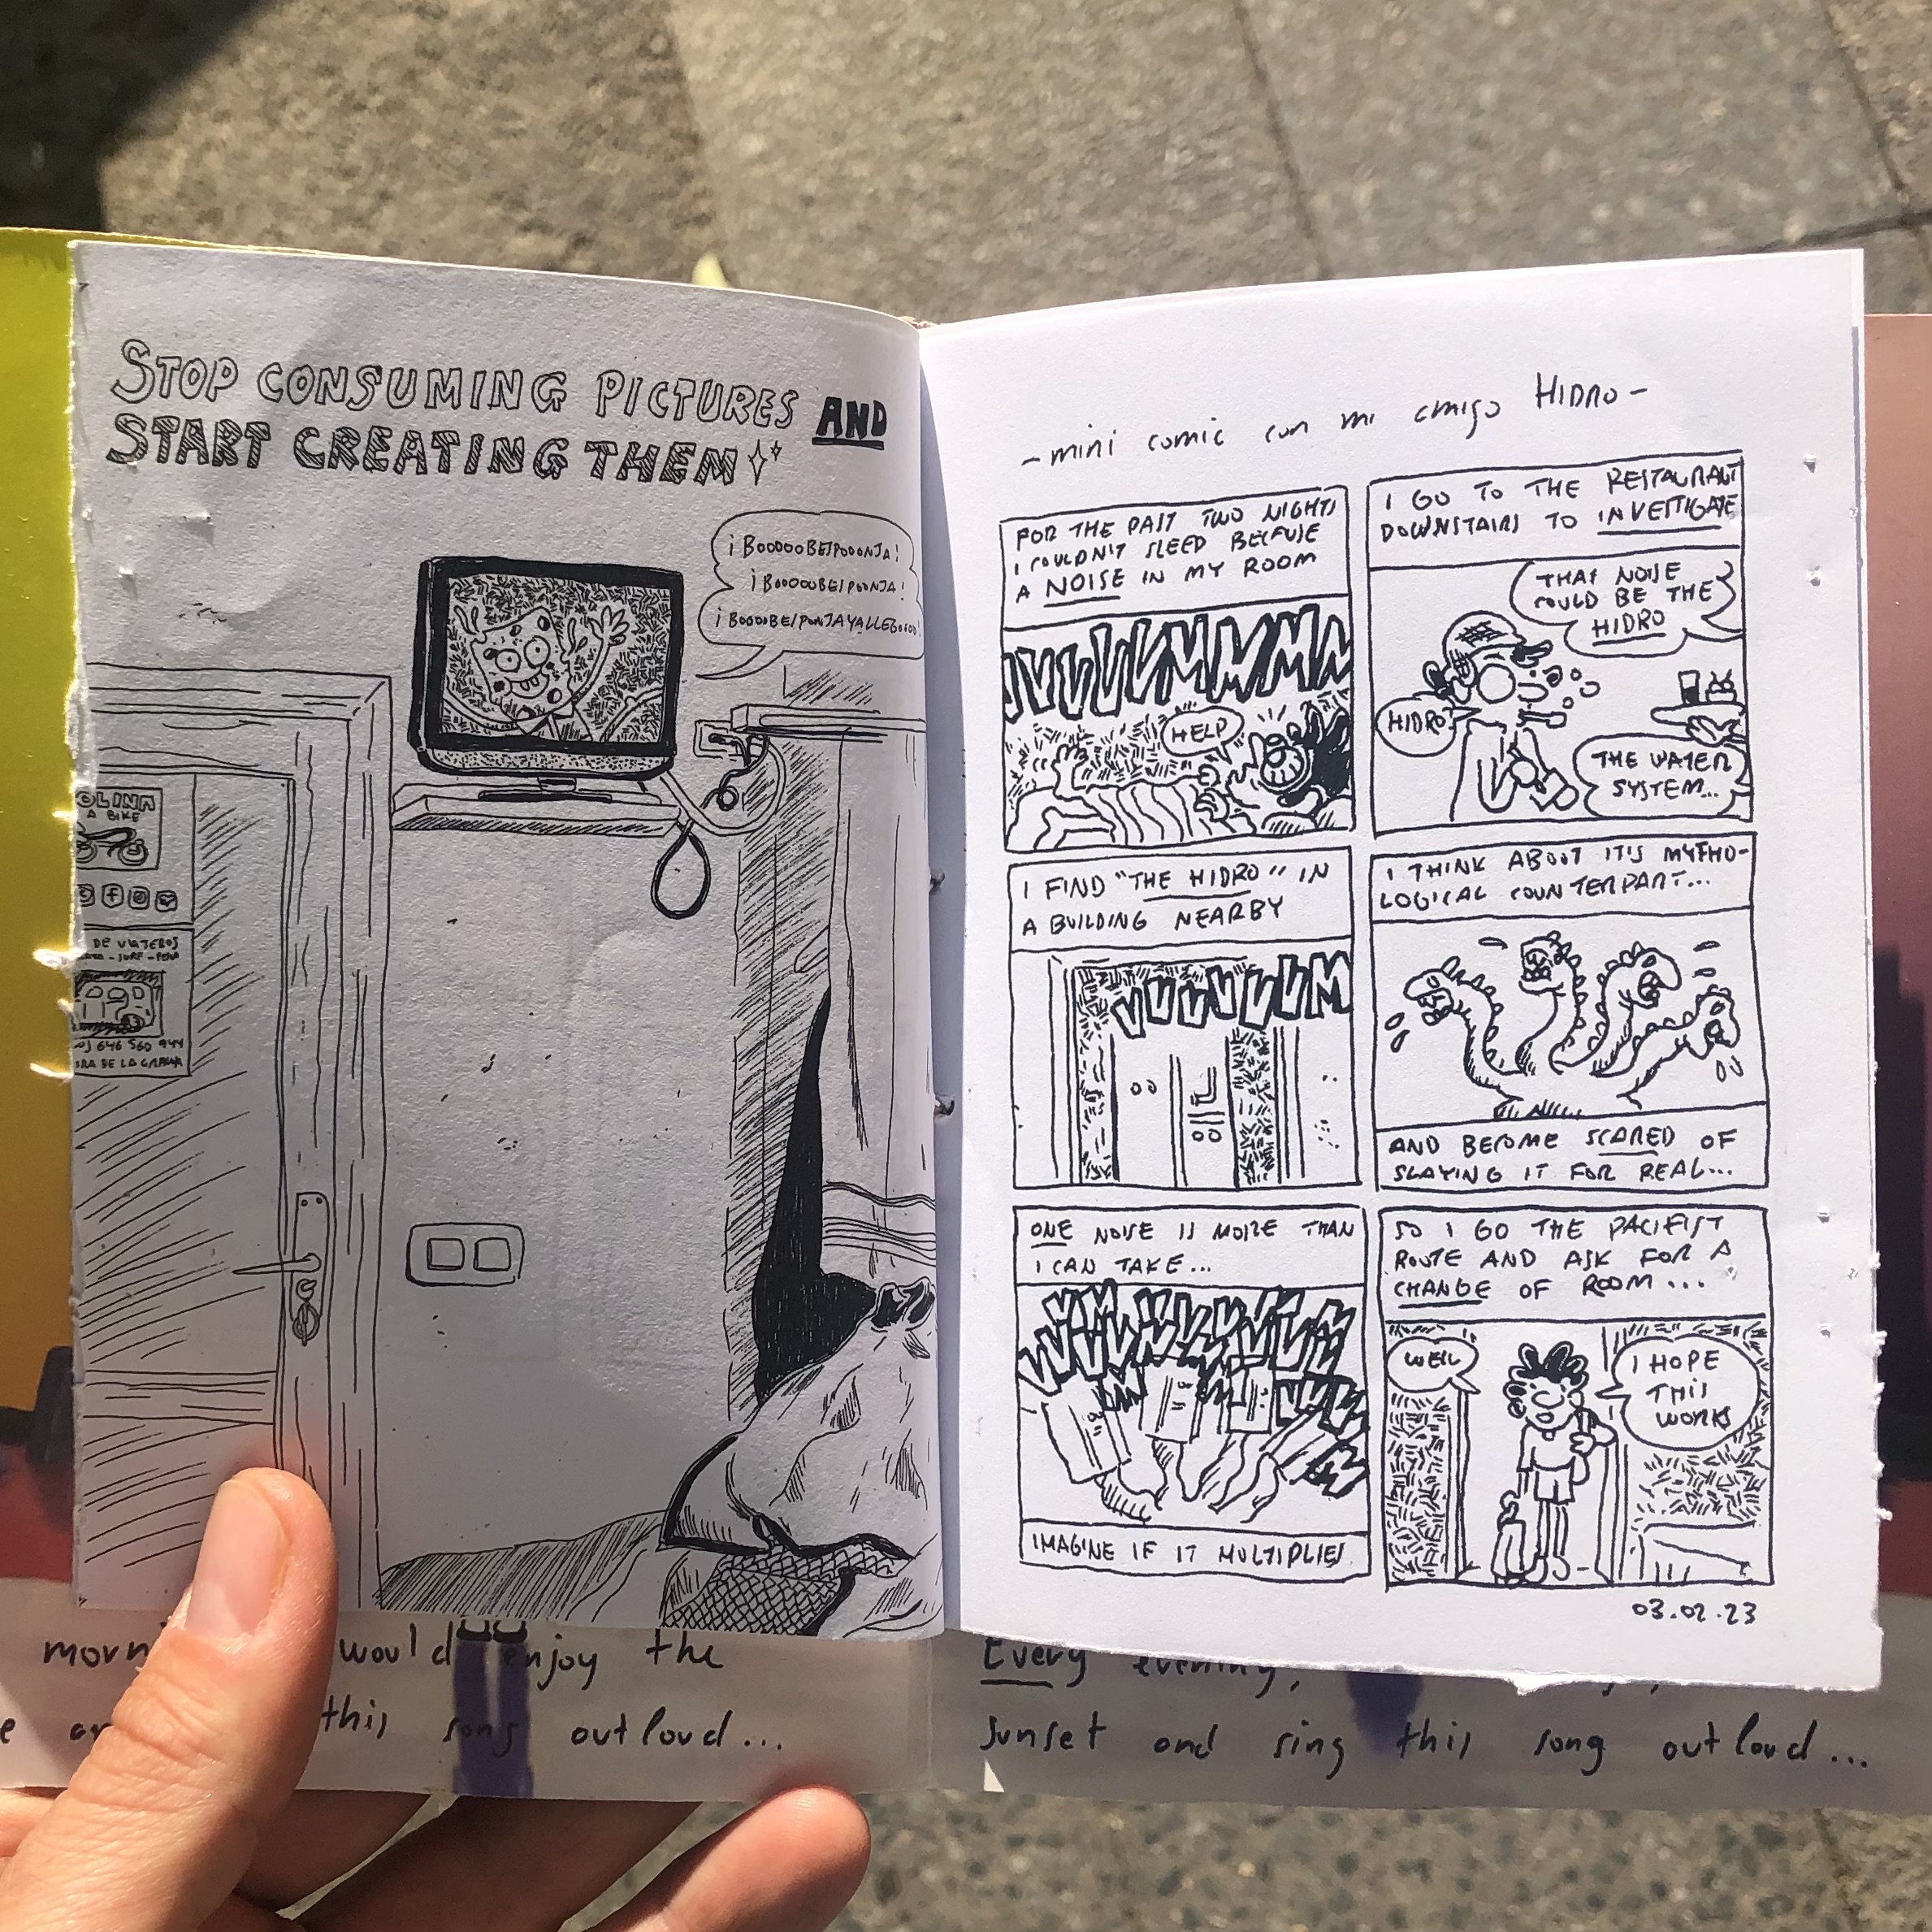 STOP CONSUMING PICTURES AND
START CREATING THEM
¡BOOOOOBESPOOONJA!
¡BOOOOUBESPOONJA!
¡BOOOOBESPONJAYALLEGOOOO!
OLINA
A BIKE
DE VIAJEROS
- SURF -
646 560 944
RA DE LA
-mini comic con mi amigo HIDRO-
FOR THE PAST TWO NIGHTS
I COULDN'T SLEEP BECAUSE
A NOISE IN MY ROOM
VUVUVVMMMMM
HELP
I GO TO THE RESTAURANT
DOWNSTAIRS TO INVESTIGATE
THAT NOISE
COULD BE THE
HIDRO
HIDRO?
THE WATER
SYSTEM...
I FIND "THE HIDRO" IN
A BUILDING NEARBY
VUVUVUM
I THINK ABOUT IT'S MYTHO-
LOGICAL COUNTERPART...
AND BECOME SCARED OF
SLAYING IT FOR REAL...
ONE NOISE IS MORE THAN
I CAN TAKE...
IMAGINE IF IT MULTIPLIES
SO I GO THE PACIFIST
ROUTE AND ASK FOR A
CHANGE OF ROOM...
WELL
I HOPE
THIS
WORKS
03.02.23
would enjoy the
this song outloud...
Every evening,
sunset and sing this song outloud...